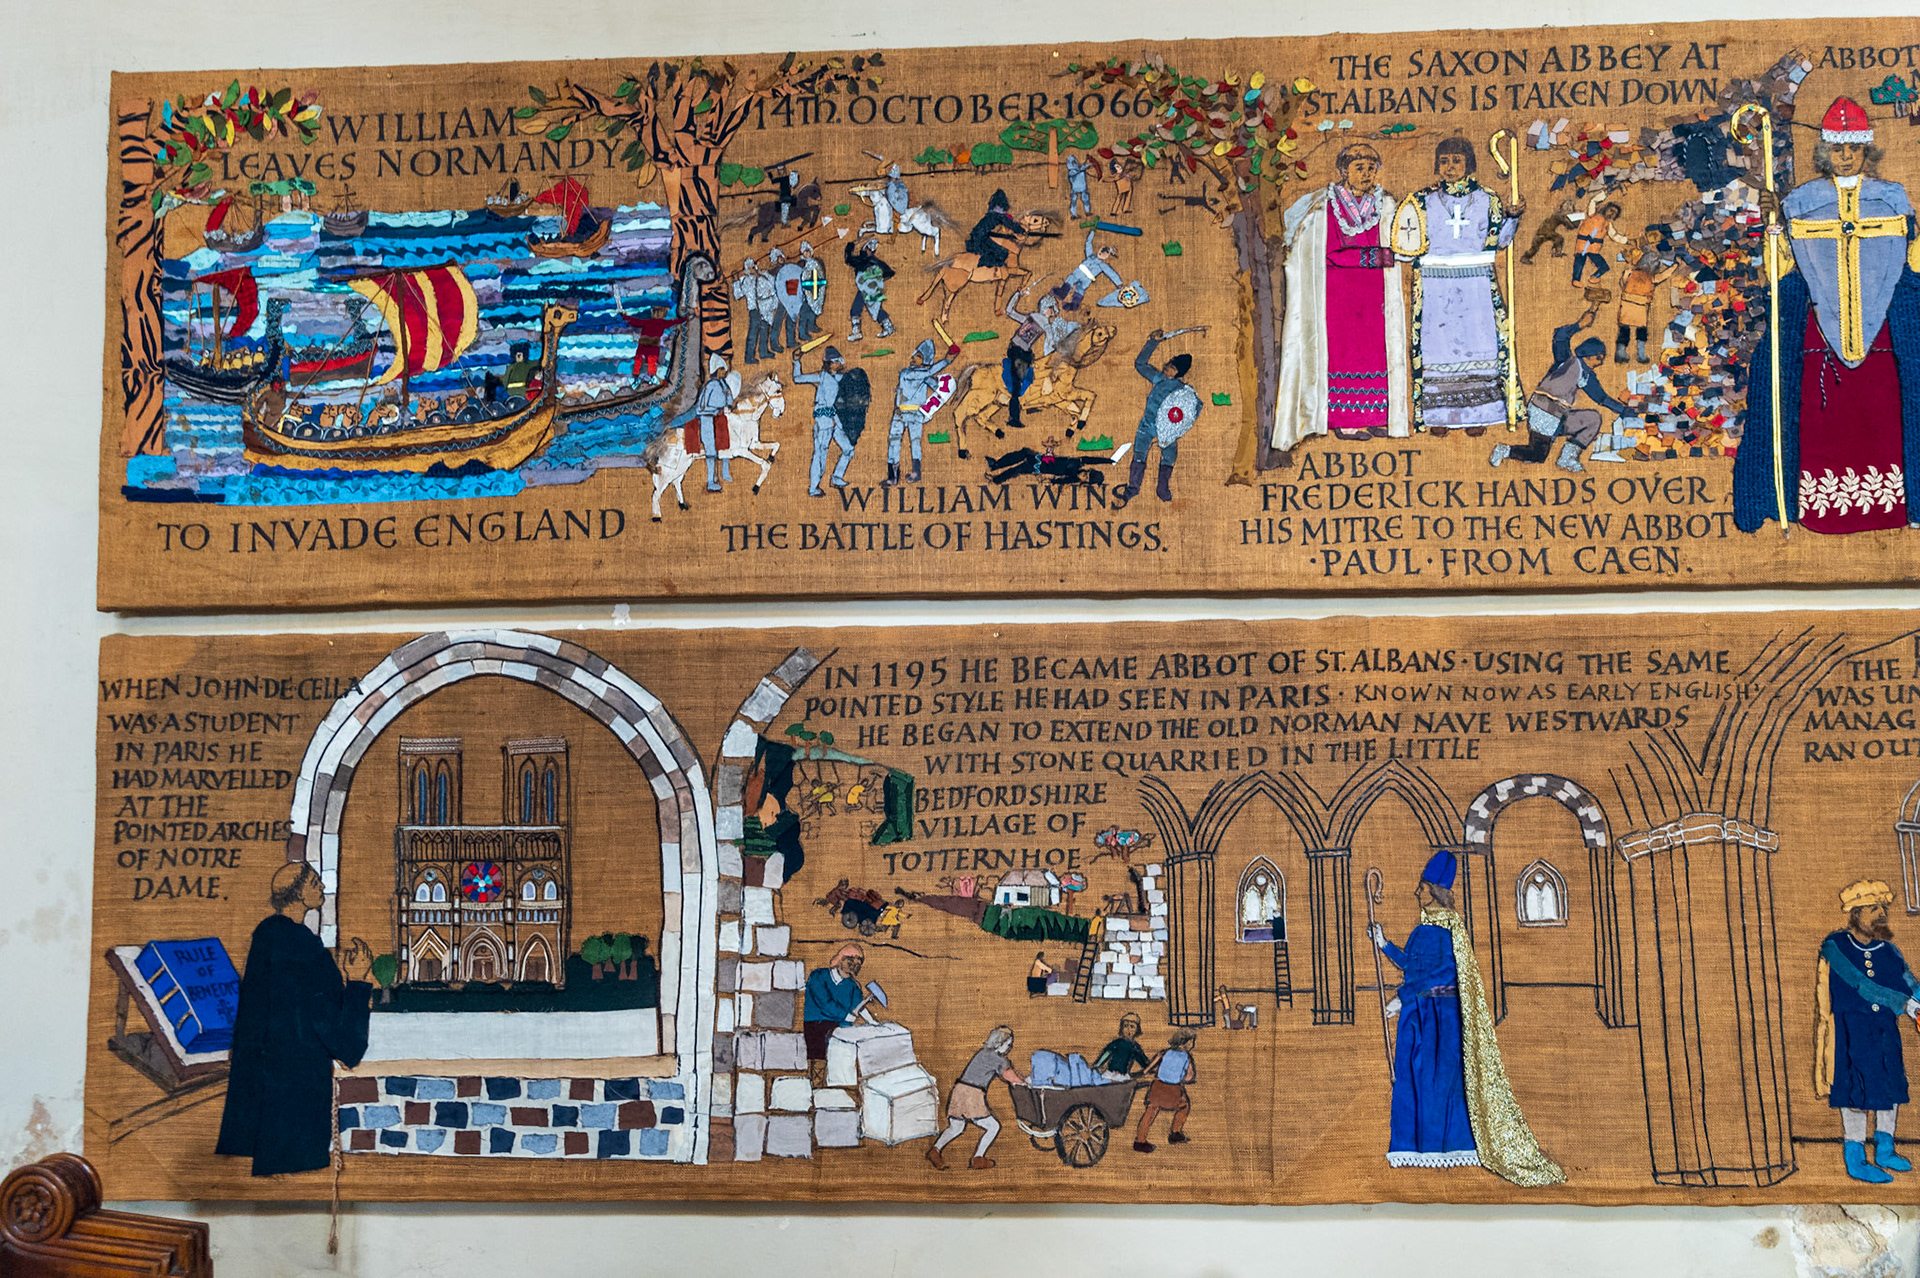 WILLIAM
LEAVES NORMANDY
TO INVADE ENGLAND
14Th. OCTOBER·1066
WILLIAM WINS
THE BATTLE OF HASTINGS.
THE SAXON ABBEY AT
ST. ALBANS IS TAKEN DOWN
ABBOT
FREDERICK HANDS OVER
HIS MITRE TO THE NEW ABBOT
·PAUL·FROM CAEN.
ABBOT
WHEN JOHN·DE·CELLA
WAS·A STUDENT
IN PARIS HE
HAD MARVELLED
AT THE
POINTED ARCHES
OF NOTRE
DAME.
RULE
OF
BENEDICT
IN 1195 HE BECAME ABBOT OF ST. ALBANS·USING THE SAME
POINTED STYLE HE HAD SEEN IN PARIS·KNOWN NOW AS EARLY ENGLISH·
HE BEGAN TO EXTEND THE OLD NORMAN NAVE WESTWARDS
WITH STONE QUARRIED IN THE LITTLE
BEDFORDSHIRE
VILLAGE OF
TOTTERNHOE
THE
WAS UN
MANAG
RAN OUT